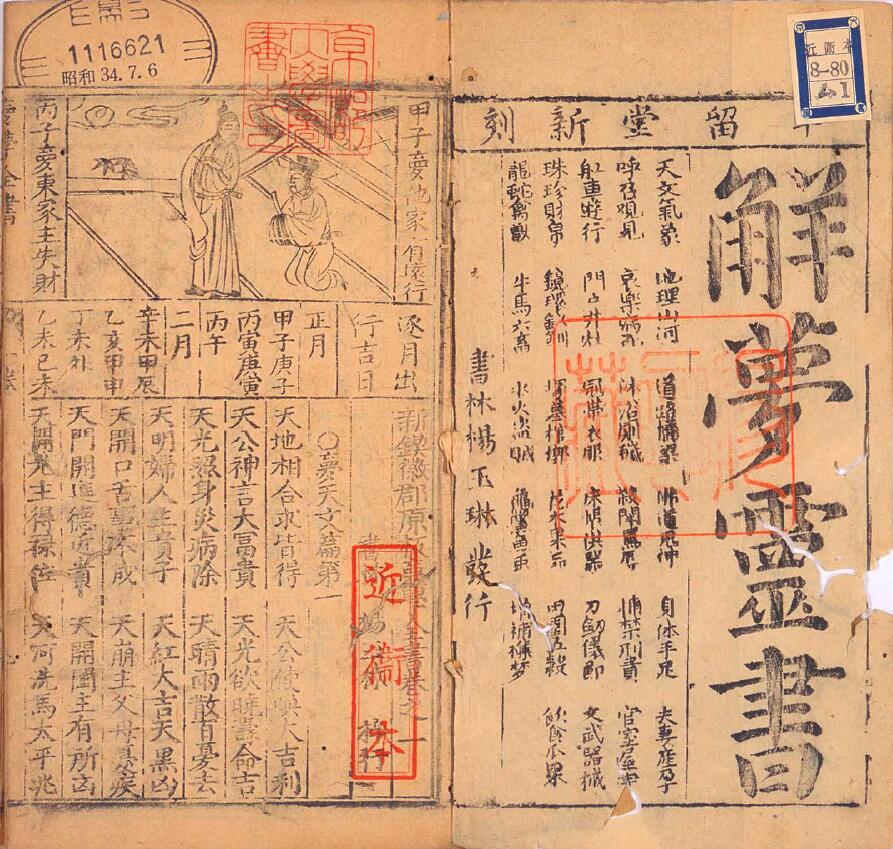 留堂新刻
解夢靈書
天文氣象 地理山河 道路橋梁 佛道鬼神 身体手足 夫妻産孕
呼召观見 哀樂病死 沐浴厠穢 殺鬪罵辱 捕禁刑責 官室屋宇
舡車遊行 門户井灶 冠帯衣服 床帳供器 刀劒儀節 文武器械
珠珍財帛 鏡環釵釧 塚墓棺椁 花木果品 田園五穀 飲食瓜果
龍蛇禽獸 牛馬六畜 水火盗賊 龜 增補禳梦
書林楊玉琳發行
近衞本
8-80
ム1
1116621
昭和 34.7.6
甲子夢他家有遠行
丙子夢東家主失財
逐月出
行吉日
正月
甲子庚子
丙寅庚寅
丙午
二月
辛未甲辰
乙亥甲申
丁未
乙未己未
新鍥徽郡原板夢學全書卷之一
書林楊 梓行
○夢天文篇第一
天地相合求皆得 天公使喚大吉利
天公神言大富貴 天光欲曉壽命吉
天光照身災病除 天晴雨散百憂去
天明婦人生貴子 天紅大吉天黑凶
天開口舌事不成 天崩主父母憂疾
天門開進德近貴 天開闔主有所凶
天開見主得祿位 天河洗馬太平兆
夢學全書
近衞本